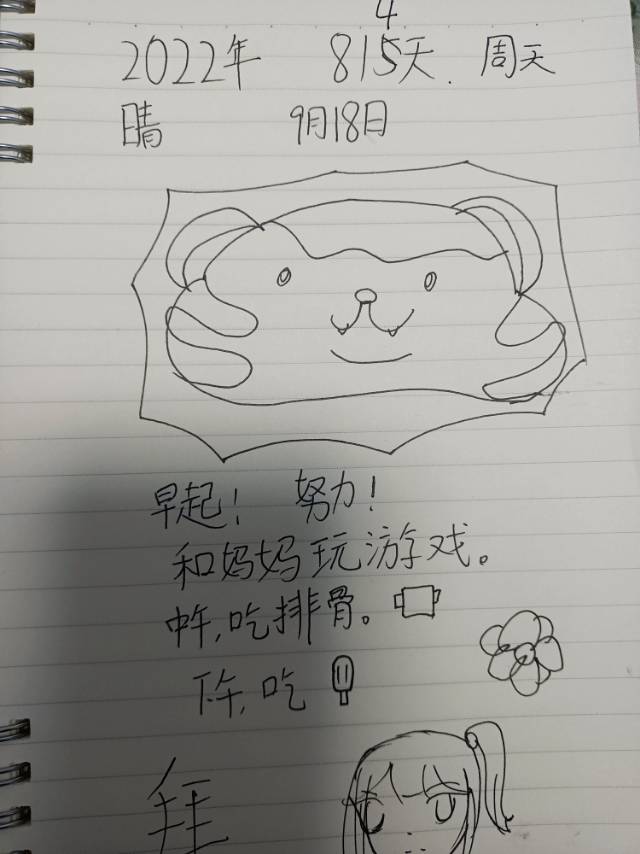 4
2022年 815天. 周天
晴 9月18日
早起! 努力!
和妈妈玩游戏。
中午,吃排骨。
下午,吃
拜